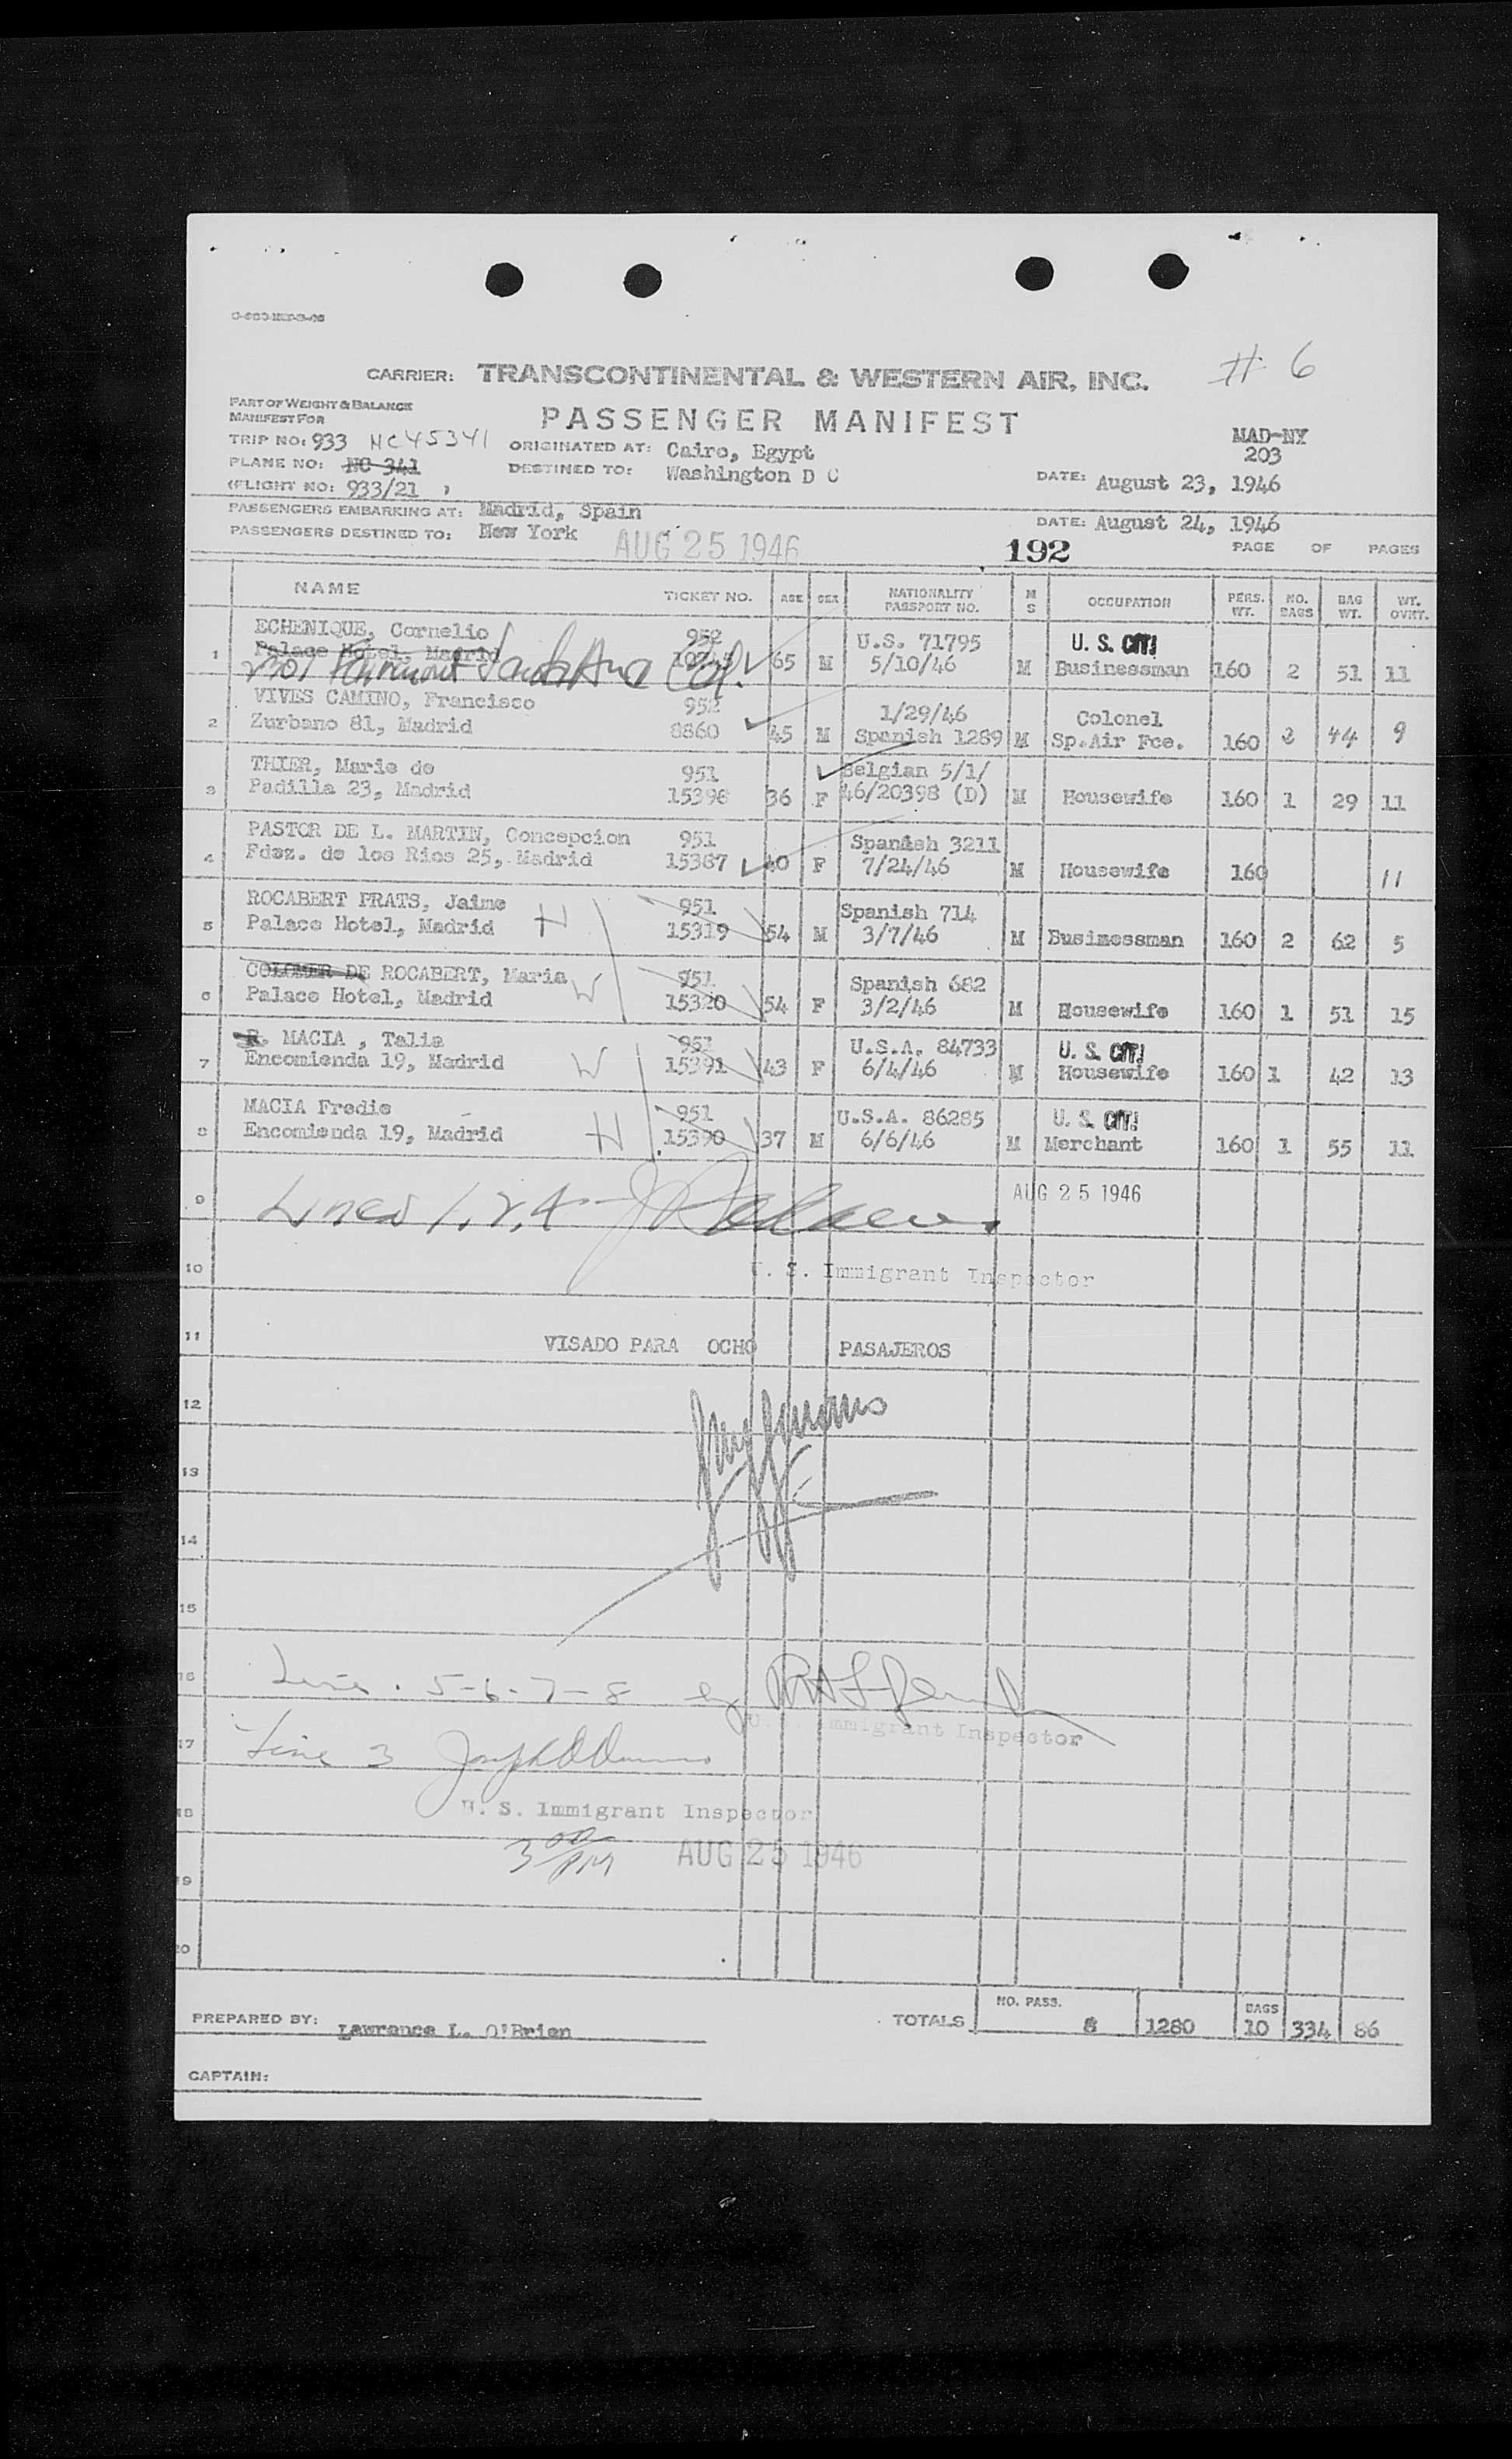 # 6
CARRIER: TRANSCONTINENTAL & WESTERN AIR, INC.
PART OF WEIGHT & BALANCE
MANIFEST FOR
PASSENGER MANIFEST
TRIP NO: 933 NC45341
ORIGINATED AT: Cairo, Egypt
MAD-NY
203
PLANE NO: NC 341
DESTINED TO: Washington D C
DATE: August 23, 1946
(FLIGHT NO: 933/21 )
PASSENGERS EMBARKING AT: Madrid, Spain
DATE: August 24, 1946
PASSENGERS DESTINED TO: New York
AUG 25 1946
192
PAGE OF PAGES
NAME TICKET NO. AGE SEX NATIONALITY PASSPORT NO. M S OCCUPATION PERS. WT. NO. BAGS BAG WT. WT. OVRT.
ECHENIQUE, Cornelio 952 U.S. 71795 U. S. CIT!
1 Palace Hotel, Madrid 65 M 5/10/46 M Businessman 160 2 51 11
Santa Ana Cal.
VIVES CAMINO, Francisco 952 1/29/46 Colonel
2 Zurbano 81, Madrid 8860 45 M Spanish 1289 M Sp.Air Fce. 160 44 9
THIER, Marie de 951 Belgian 5/1/
3 Padilla 23, Madrid 15398 36 F 46/20398 (D) M Housewife 160 1 29 11
PASTOR DE L. MARTIN, Concepcion 951 Spanish 3211
4 Fdez. de los Rios 25, Madrid 15387 40 F 7/24/46 M Housewife 160 11
ROCABERT PRATS, Jaime H 951 Spanish 714
5 Palace Hotel, Madrid 15319 54 M 3/7/46 M Businessman 160 2 62 5
COLOMER DE ROCABERT, Maria W 951 Spanish 682
6 Palace Hotel, Madrid 15320 54 F 3/2/46 M Housewife 160 1 51 15
R. MACIA , Talia 951 U.S.A. 84733 U. S. CIT!
7 Encomienda 19, Madrid W 15391 43 F 6/4/46 M Housewife 160 1 42 13
MACIA Fredie 951 U.S.A. 86285 U. S. CIT!
8 Encomienda 19, Madrid H 15390 37 M 6/6/46 M Merchant 160 1 55 11
9 Lines 1, 2, 4
AUG 25 1946
10 U. S. Immigrant Inspector
11 VISADO PARA OCHO PASAJEROS
12
13
14
15
16 Line . 5-6-7-8 by
U. S. Immigrant Inspector
17 Line 3
18 U. S. Immigrant Inspector
3 00 PM AUG 25 1946
19
20
PREPARED BY: Lawrance L. O'Brien
TOTALS NO. PASS. 8 1280 BAGS 10 334 86
CAPTAIN: